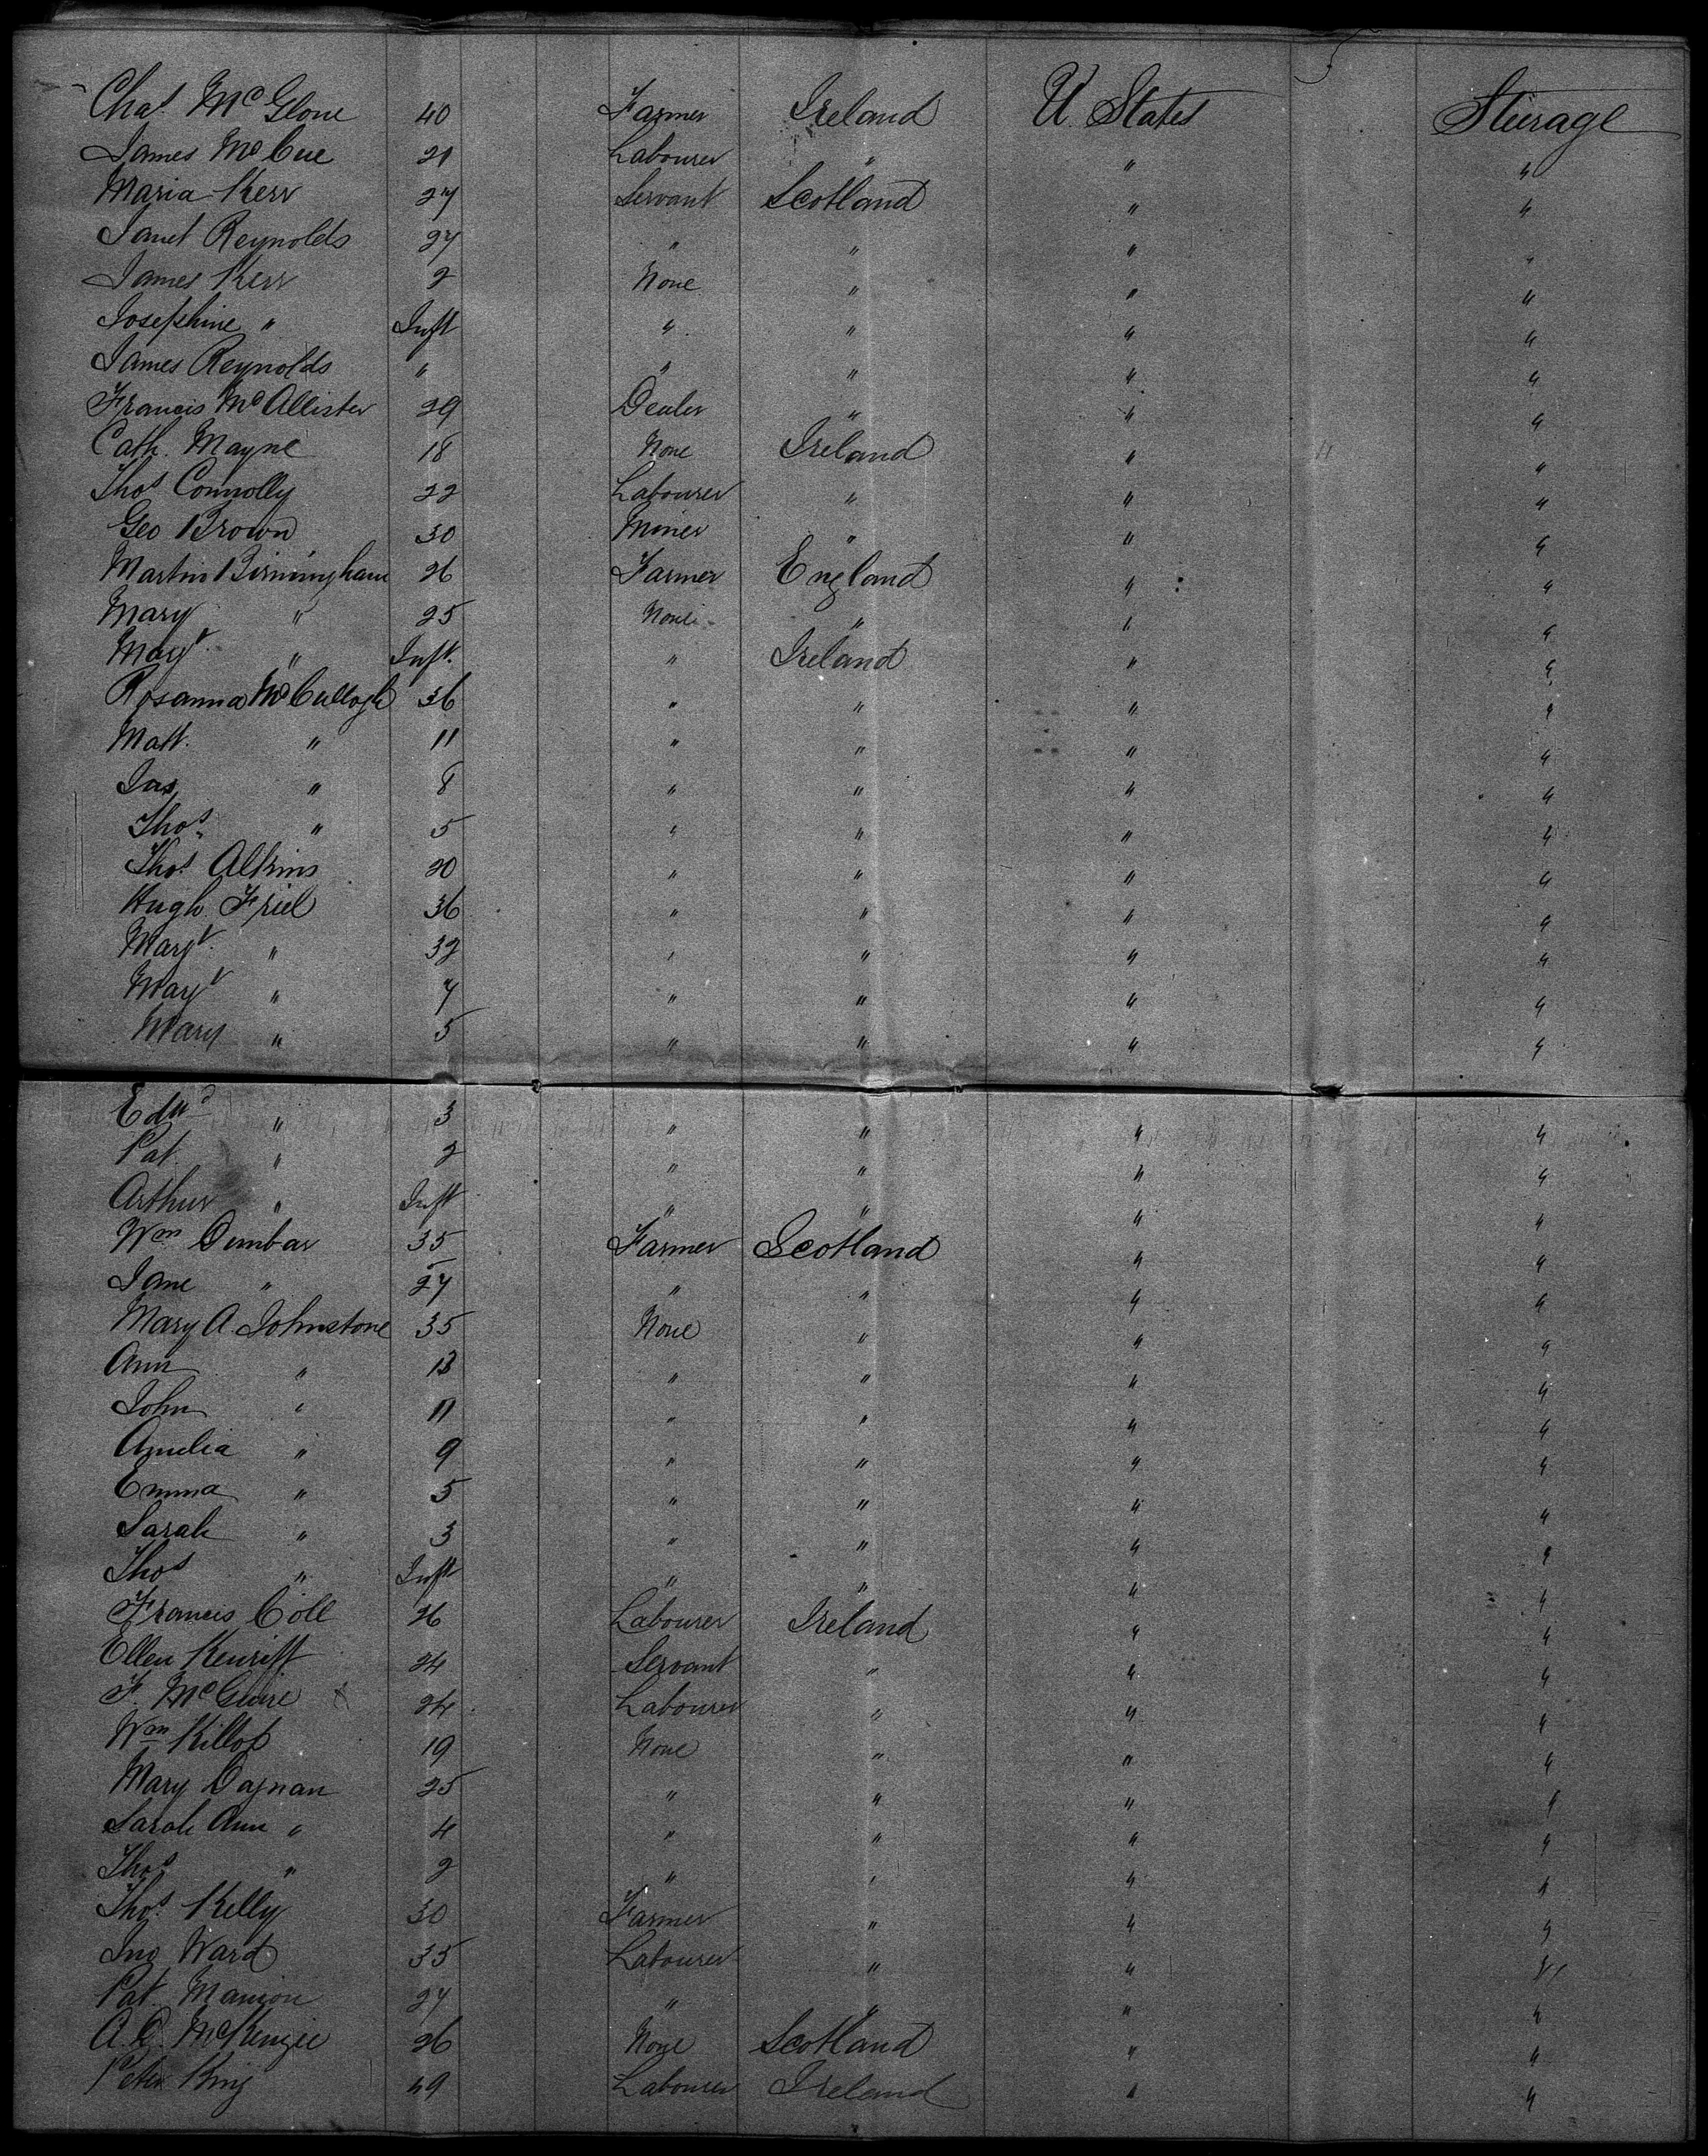 Chas. McGlone 40 Farmer Ireland U. States Steerage
James McCue 21 Labourer " " "
Maria Kerr 27 Servant Scotland " "
Janet Reynolds 27 " " " "
James Kerr 2 None " " "
Josephine " Inft " " " "
James Reynolds " " " " "
Francis McAllister 29 Dealer " " "
Cath. Mayne 18 None Ireland " "
Thos Connolly 22 Labourer " " "
Geo Brown 30 Miner " " "
Martin Birmingham 26 Farmer England " "
Mary " 25 None " " "
Magt. " Inft. " Ireland " "
Rosanna McCullogh 36 " " " "
Matt. " 11 " " " "
Jas. " 8 " " " "
Thos. " 5 " " " "
Thos. Atkins 20 " " " "
Hugh Friel 36 " " " "
Margt. " 32 " " " "
Magt " 7 " " " "
Mary " 5 " " " "
Edwd " 3 " " " "
Pat " 2 " " " "
Arthur " Inft " " " "
Wm Dunbar 35 Farmer Scotland " "
Jane " 27 " " " "
Mary A. Johnstone 35 None " " "
Ann " 13 " " " "
John " 11 " " " "
Amelia " 9 " " " "
Emma " 5 " " " "
Sarah " 3 " " " "
Thos " Inft " " " "
Francis Coll 26 Labourer Ireland " "
Ellen 24 Servant " " "
F. McGuire 24 Labourer " " "
Wm Killop 19 None " " "
Mary Dagnan 25 " " " "
Sarah Ann " 4 " " " "
Thos " 2 " " " "
Thos. Kelly 30 Farmer " " "
Jno Ward 35 Labourer " " "
Pat. Mangon 27 " " " "
A. D. McKenzie 26 None Scotland " "
Peter King 49 Labourer Ireland " "